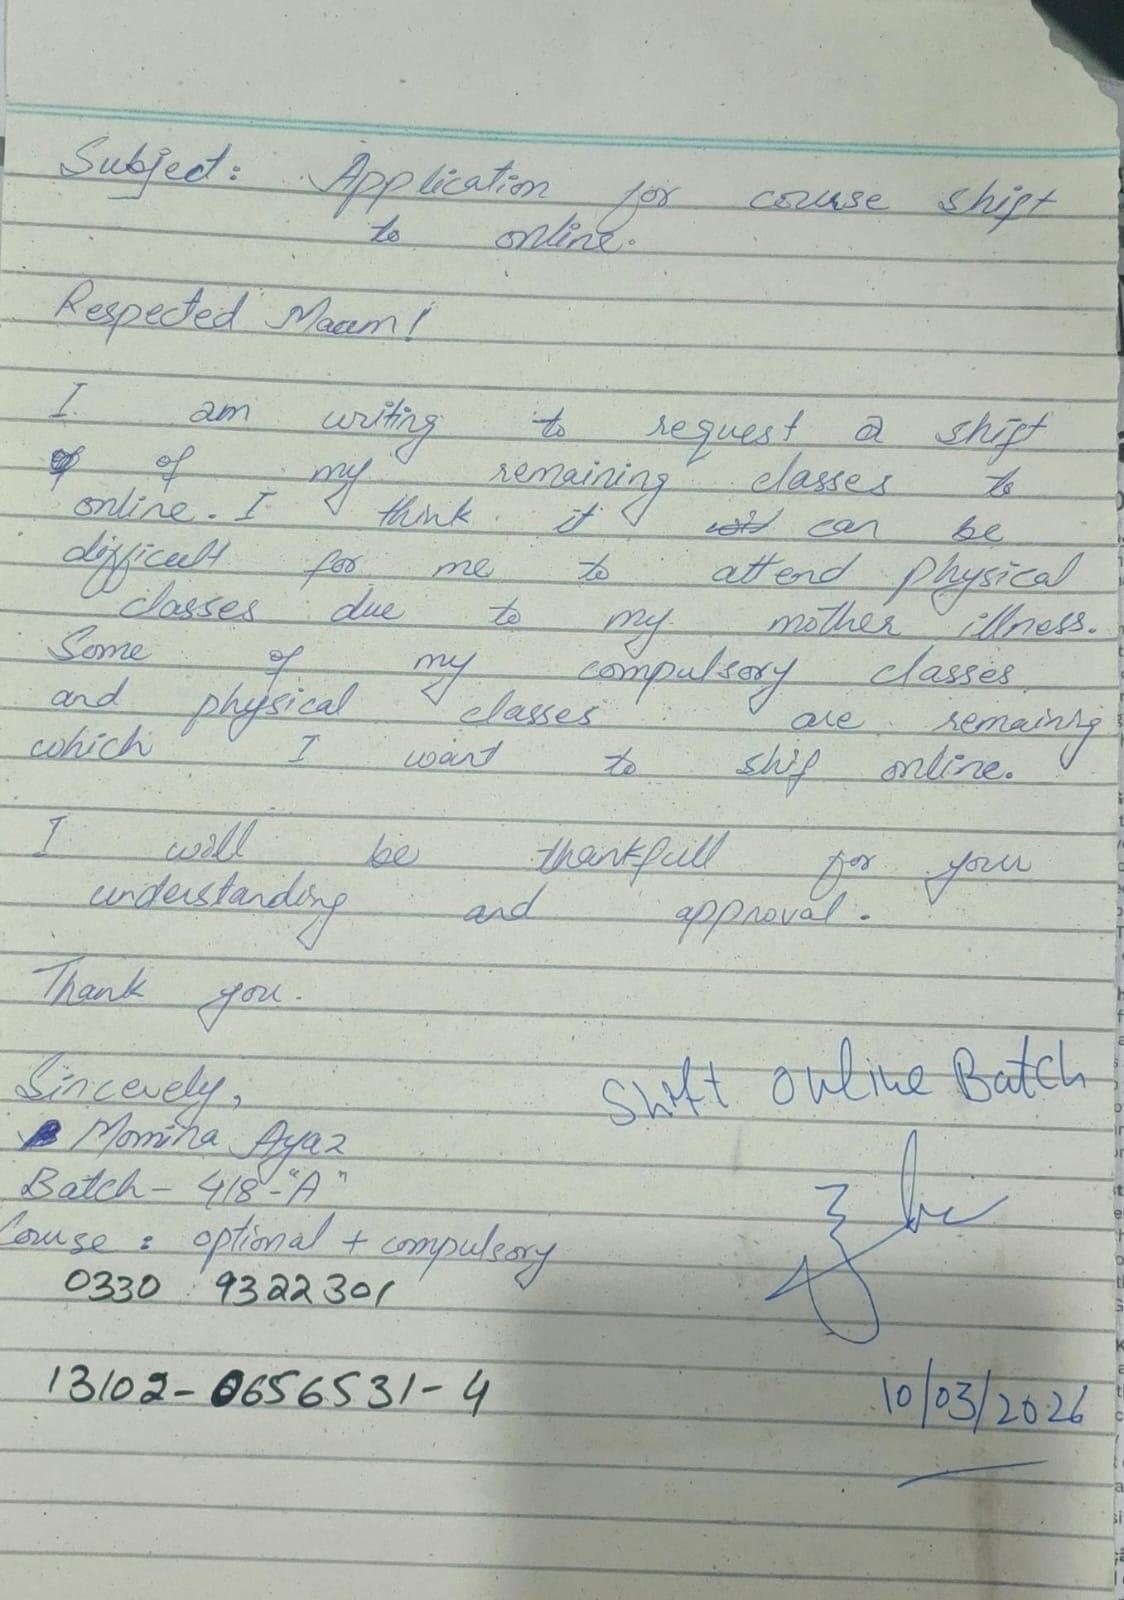 Subject: Application for course shift
to online.
Respected Maam!
I am writing to request a shift
of my remaining classes to
online. I think it can be
difficult for me to attend physical
classes due to my mother illness.
Some of my compulsory classes
and physical classes are remaining
which I want to shif online.
I will be thankfull for your
understanding and approval.
Thank you.
Sincerely,
Momina Ayaz
Batch - 418-"A"
Course : optional + compulsory
0330 9322301
13102-0656531-4
Shift Online Batch
10/03/2026